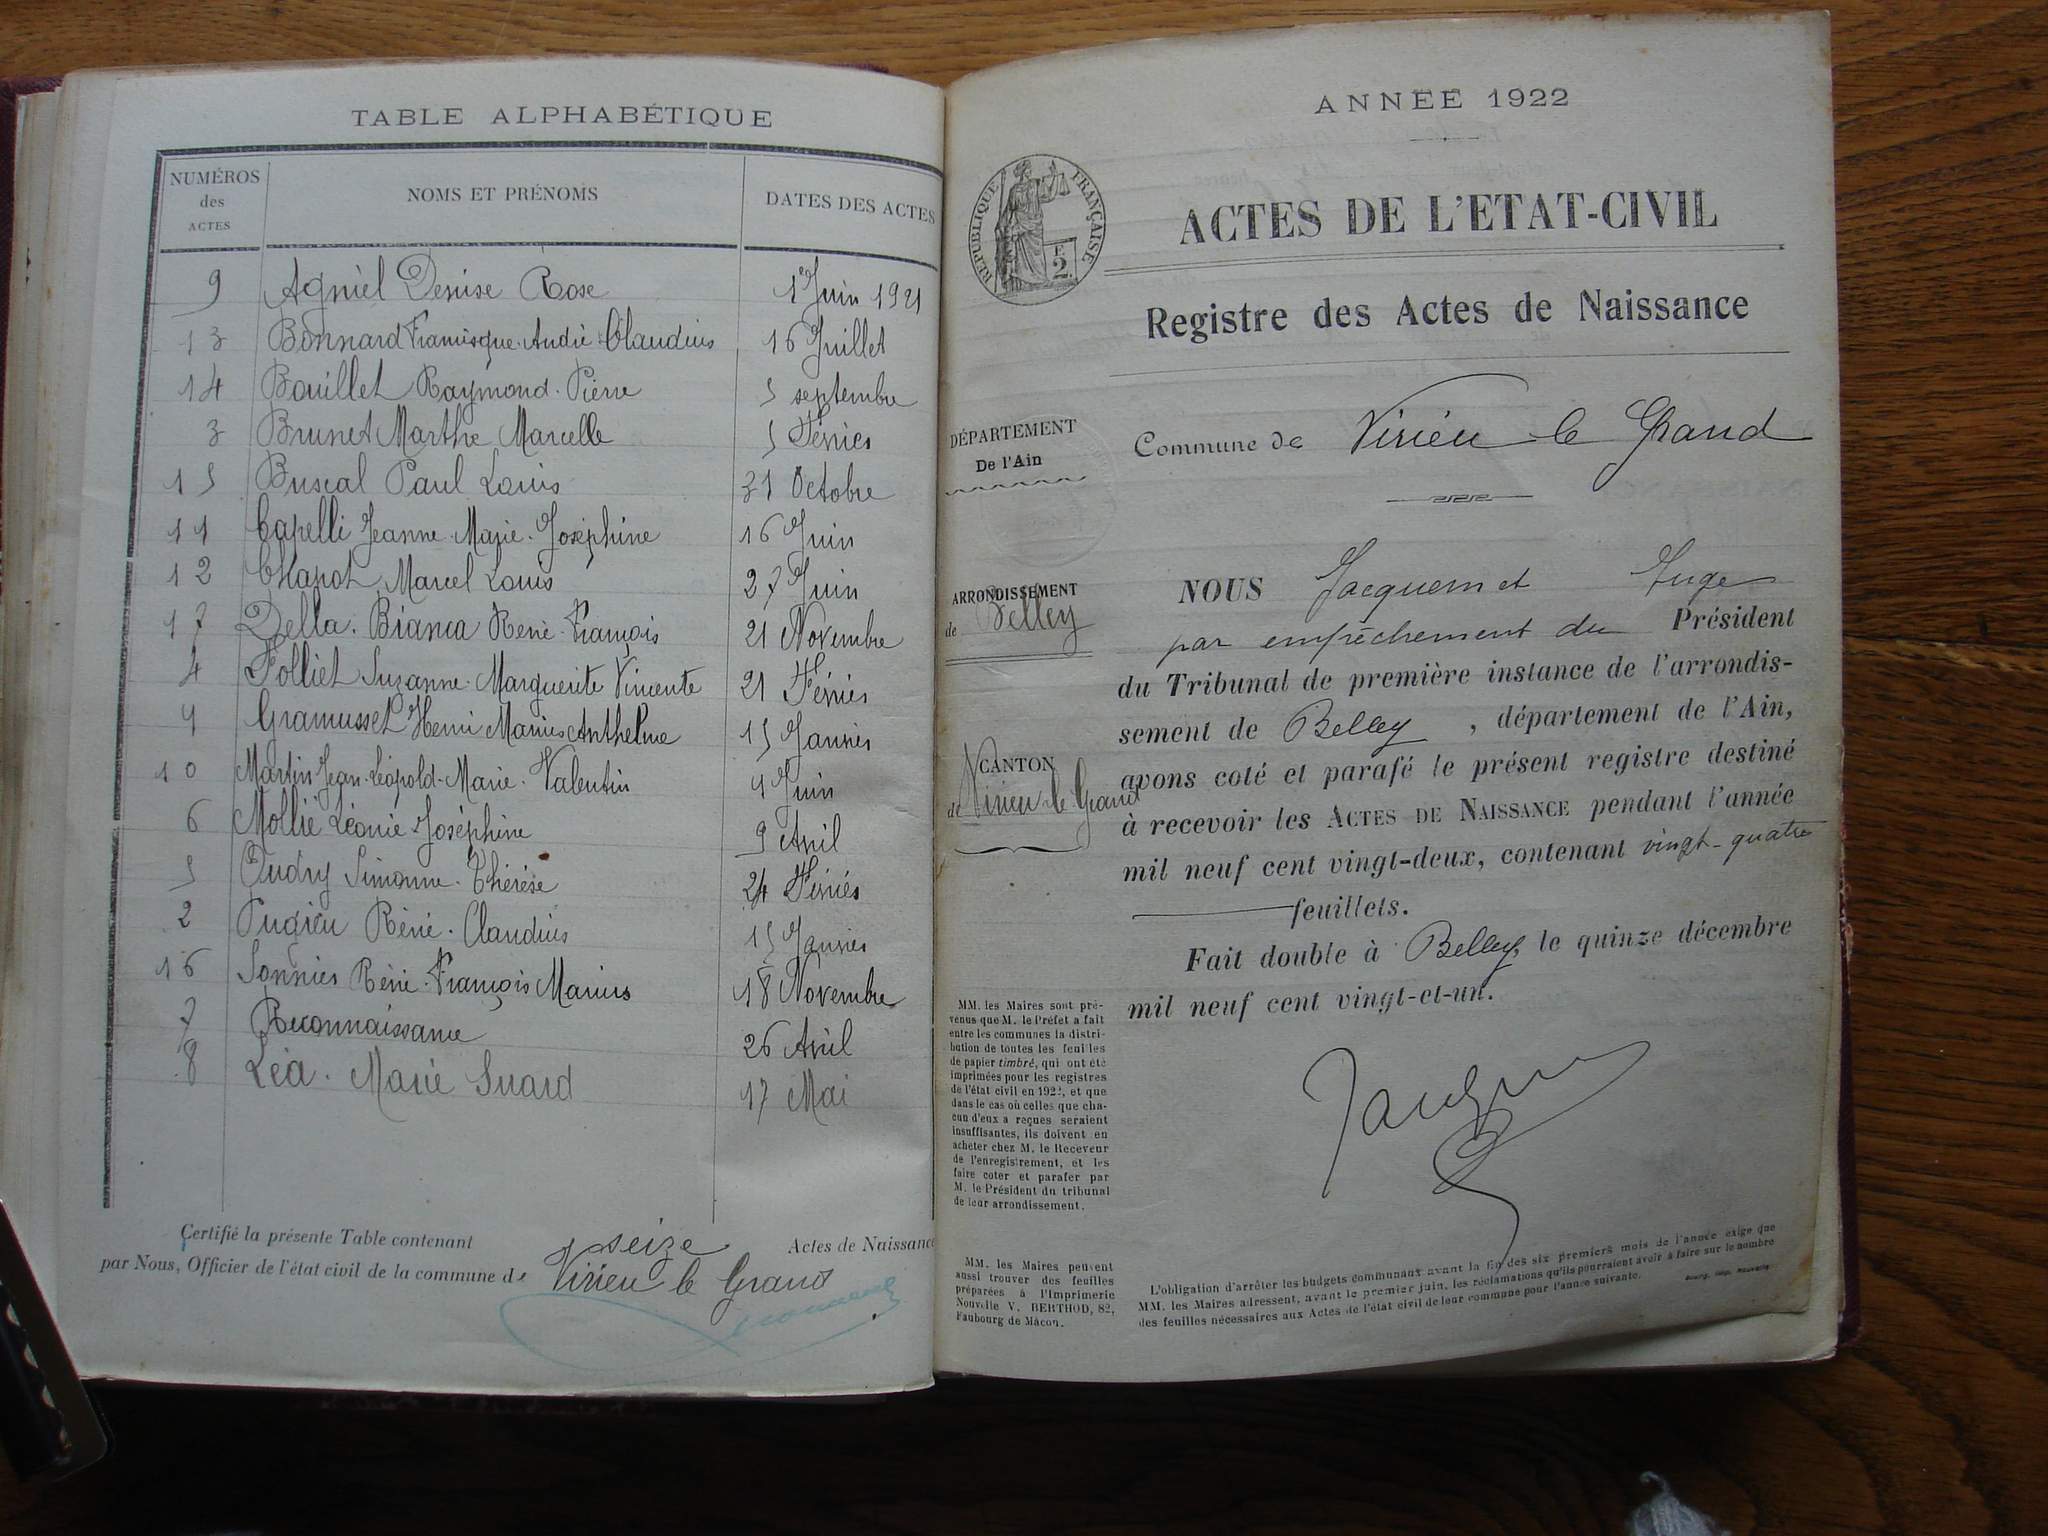 TABLE ALPHABÉTIQUE
NUMÉROS des ACTES NOMS ET PRÉNOMS DATES DES ACTES
9 Agniel Denise Rose 1er Juin 1921
13 Bonnard Francisque André Claudius 16 Juillet
14 Bouillet Raymond Pierre 5 septembre
3 Brunet Marthe Marcelle 5 Février
15 Buscal Paul Louis 31 Octobre
11 Capelli Jeanne Marie Joséphine 16 Juin
12 Chapot Marcel Louis 27 Juin
17 Della Bianca René François 21 Novembre
4 Folliet Suzanne Marguerite Vincente 21 Février
1 Gramusset Henri Marius Anthelme 15 Janvier
10 Martin Jean-Léopold-Marie Valentin 9 Juin
6 Mollié Léonie Joséphine 9 Avril
5 Oudry Simonne Thérèse 24 Février
2 Pugieu René Claudius 15 Janvier
16 Sonnier René François Marius 18 Novembre
7 Reconnaissance 26 Avril
8 Léa Marie Suard 17 Mai
Certifié la présente Table contenant seize Actes de Naissance
par Nous, Officier de l'état civil de la commune de Virieu le Grand
ANNÉE 1922
RÉPUBLIQUE FRANÇAISE
2F
ACTES DE L'ETAT-CIVIL
Registre des Actes de Naissance
DÉPARTEMENT
De l'Ain
Commune de Virieu-le Grand
ARRONDISSEMENT
de Belley
CANTON
de Virieu-le Grand
NOUS Jacquemet Juge
par empêchement du Président
du Tribunal de première instance de l'arrondis-
sement de Belley, département de l'Ain,
avons coté et parafé le présent registre destiné
à recevoir les ACTES DE NAISSANCE pendant l'année
mil neuf cent vingt-deux, contenant vingt-quatre
feuillets.
Fait double à Belley, le quinze décembre
mil neuf cent vingt-et-un.
MM. les Maires sont pré-
venus que M. le Préfet a fait
entre les communes la distri-
bution de toutes les feuilles
de papier timbré, qui ont été
imprimées pour les registres
de l'état civil en 1922, et que
dans le cas où celles que cha-
cun d'eux a reçues seraient
insuffisantes, ils doivent en
acheter chez M. le Receveur
de l'enregistrement, et les
faire coter et parafer par
M. le Président du tribunal
de leur arrondissement.
MM. les Maires peuvent
aussi trouver des feuilles
préparées à l'Imprimerie
Nouvelle V. BERTHOD, 82,
Faubourg de Mâcon.
L'obligation d'arrêter les budgets communaux avant la fin des six premiers mois de l'année exige que
MM. les Maires adressent, avant le premier juin, les réclamations qu'ils pourraient avoir à faire sur le nombre
des feuilles nécessaires aux Actes de l'état civil de leur commune pour l'année suivante.
Bourg, Imp. Nouvelle